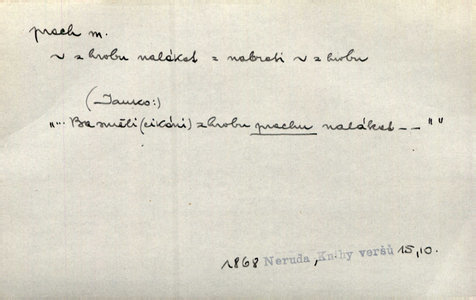 prach m.
v z hrobu nalákat = nabrati v z hrobu
(Janko:)
"... Ba směli (cikáni) z hrobu prachu nalákat — — " "
1868 Neruda, Knihy veršů 15, 10.